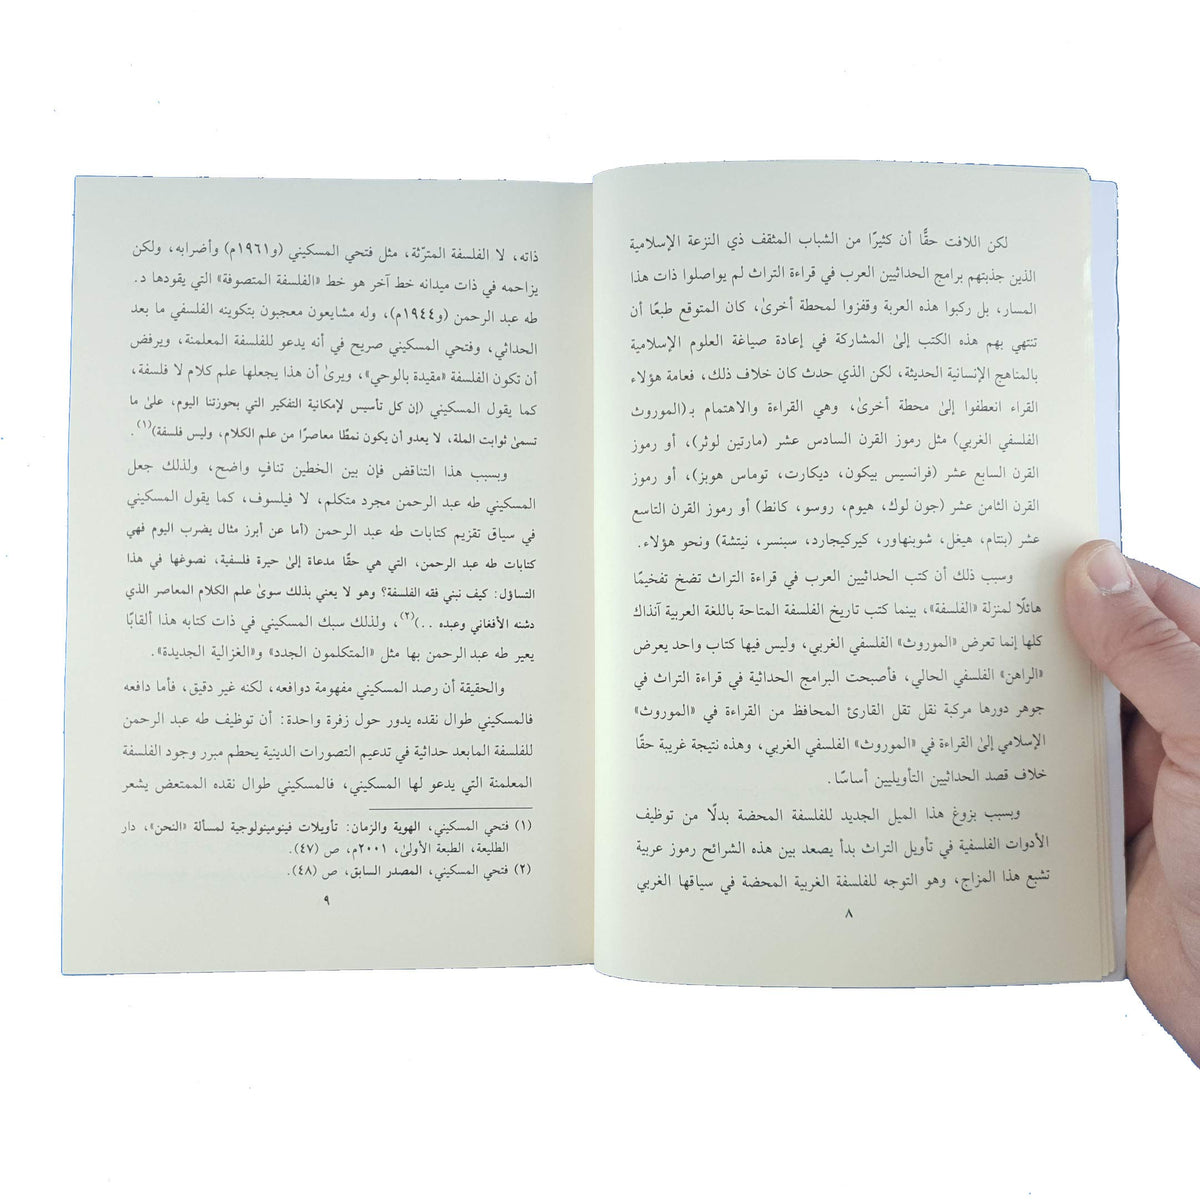 لكن اللافت حقًّا أن كثيرًا من الشباب المثقف ذي النزعة الإسلامية
الذين جذبتهم برامج الحداثيين العرب في قراءة التراث لم يواصلوا ذات هذا
المسار، بل ركبوا هذه العربة وقفزوا لمحطة أخرىٰ، كان المتوقع طبعًا أن
تنتهي بهم هذه الكتب إلىٰ المشاركة في إعادة صياغة العلوم الإسلامية
بالمناهج الإنسانية الحديثة، لكن الذي حدث كان خلاف ذلك، فعامة هؤلاء
القراء انعطفوا إلىٰ محطة أخرىٰ، وهي القراءة والاهتمام بـ(الموروث
الفلسفي الغربي) مثل رموز القرن السادس عشر (مارتين لوثر)، أو رموز
القرن السابع عشر (فرانسيس بيكون، ديكارت، توماس هوبز)، أو رموز
القرن الثامن عشر (جون لوك، هيوم، روسو، كانط) أو رموز القرن التاسع
عشر (بنتام، هيغل، شوبنهاور، كيركيجارد، سبنسر، نيتشة) ونحو هؤلاء.
وسبب ذلك أن كتب الحداثيين العرب في قراءة التراث تضخ تفخيمًا
هائلًا لمنزلة «الفلسفة»، بينما كتب تاريخ الفلسفة المتاحة باللغة العربية آنذاك
كلها إنما تعرض «الموروث» الفلسفي الغربي، وليس فيها كتاب واحد يعرض
«الراهن» الفلسفي الحالي، فأصبحت البرامج الحداثية في قراءة التراث في
جوهر دورها مركبة نقل تقل القارئ المحافظ من القراءة في «الموروث»
الإسلامي إلىٰ القراءة في «الموروث» الفلسفي الغربي، وهذه نتيجة غريبة حقًا
خلاف قصد الحداثيين التأويليين أساسًا.
وبسبب بزوغ هذا الميل الجديد للفلسفة المحضة بدلًا من توظيف
الأدوات الفلسفية في تأويل التراث بدأ يصعد بين هذه الشرائح رموز عربية
تشبع هذا المزاج، وهو التوجه للفلسفة الغربية المحضة في سياقها الغربي
٨
ذاته، لا الفلسفة المترّثة، مثل فتحي المسكيني (و١٩٦١م) وأضرابه، ولكن
يزاحمه في ذات ميدانه خط آخر هو خط «الفلسفة المتصوفة» التي يقودها د.
طه عبد الرحمن (و١٩٤٤م)، وله مشايعون معجبون بتكوينه الفلسفي ما بعد
الحداثي، وفتحي المسكيني صريح في أنه يدعو للفلسفة المعلمنة، ويرفض
أن تكون الفلسفة «مقيدة بالوحي»، ويرىٰ أن هذا يجعلها علم كلام لا فلسفة،
كما يقول المسكيني (إن كل تأسيس لإمكانية التفكير التي بحوزتنا اليوم، علىٰ ما
تسمىٰ ثوابت الملة، لا يعدو أن يكون نمطًا معاصرًا من علم الكلام، وليس فلسفة)(١).
وبسبب هذا التناقض فإن بين الخطين تنافٍ واضح، ولذلك جعل
المسكيني طه عبد الرحمن مجرد متكلم، لا فيلسوف، كما يقول المسكيني
في سياق تقزيم كتابات طه عبد الرحمن (أما عن أبرز مثال يضرب اليوم فهي
كتابات طه عبد الرحمن، التي هي حقًا مدعاة إلىٰ حيرة فلسفية، نصوغها في هذا
التساؤل: كيف نبني فقه الفلسفة؟ وهو لا يعني بذلك سوىٰ علم الكلام المعاصر الذي
دشنه الأفغاني وعبده ..)(٢)، ولذلك سبك المسكيني في ذات كتابه هذا ألقابًا
يعير طه عبد الرحمن بها مثل «المتكلمون الجدد» و«الغزالية الجديدة».
والحقيقة أن رصد المسكيني مفهومة دوافعه، لكنه غير دقيق، فأما دافعه
فالمسكيني طوال نقده يدور حول زفرة واحدة: أن توظيف طه عبد الرحمن
للفلسفة المابعد حداثية في تدعيم التصورات الدينية يحطم مبرر وجود الفلسفة
المعلمنة التي يدعو لها المسكيني، فالمسكيني طوال نقده الممتعض يشعر
(١) فتحي المسكيني، الهوية والزمان: تأويلات فينومينولوجية لمسألة «النحن»، دار
الطليعة، الطبعة الأولىٰ، ٢٠٠١م، ص (٤٧).
(٢) فتحي المسكيني، المصدر السابق، ص (٤٨).
٩